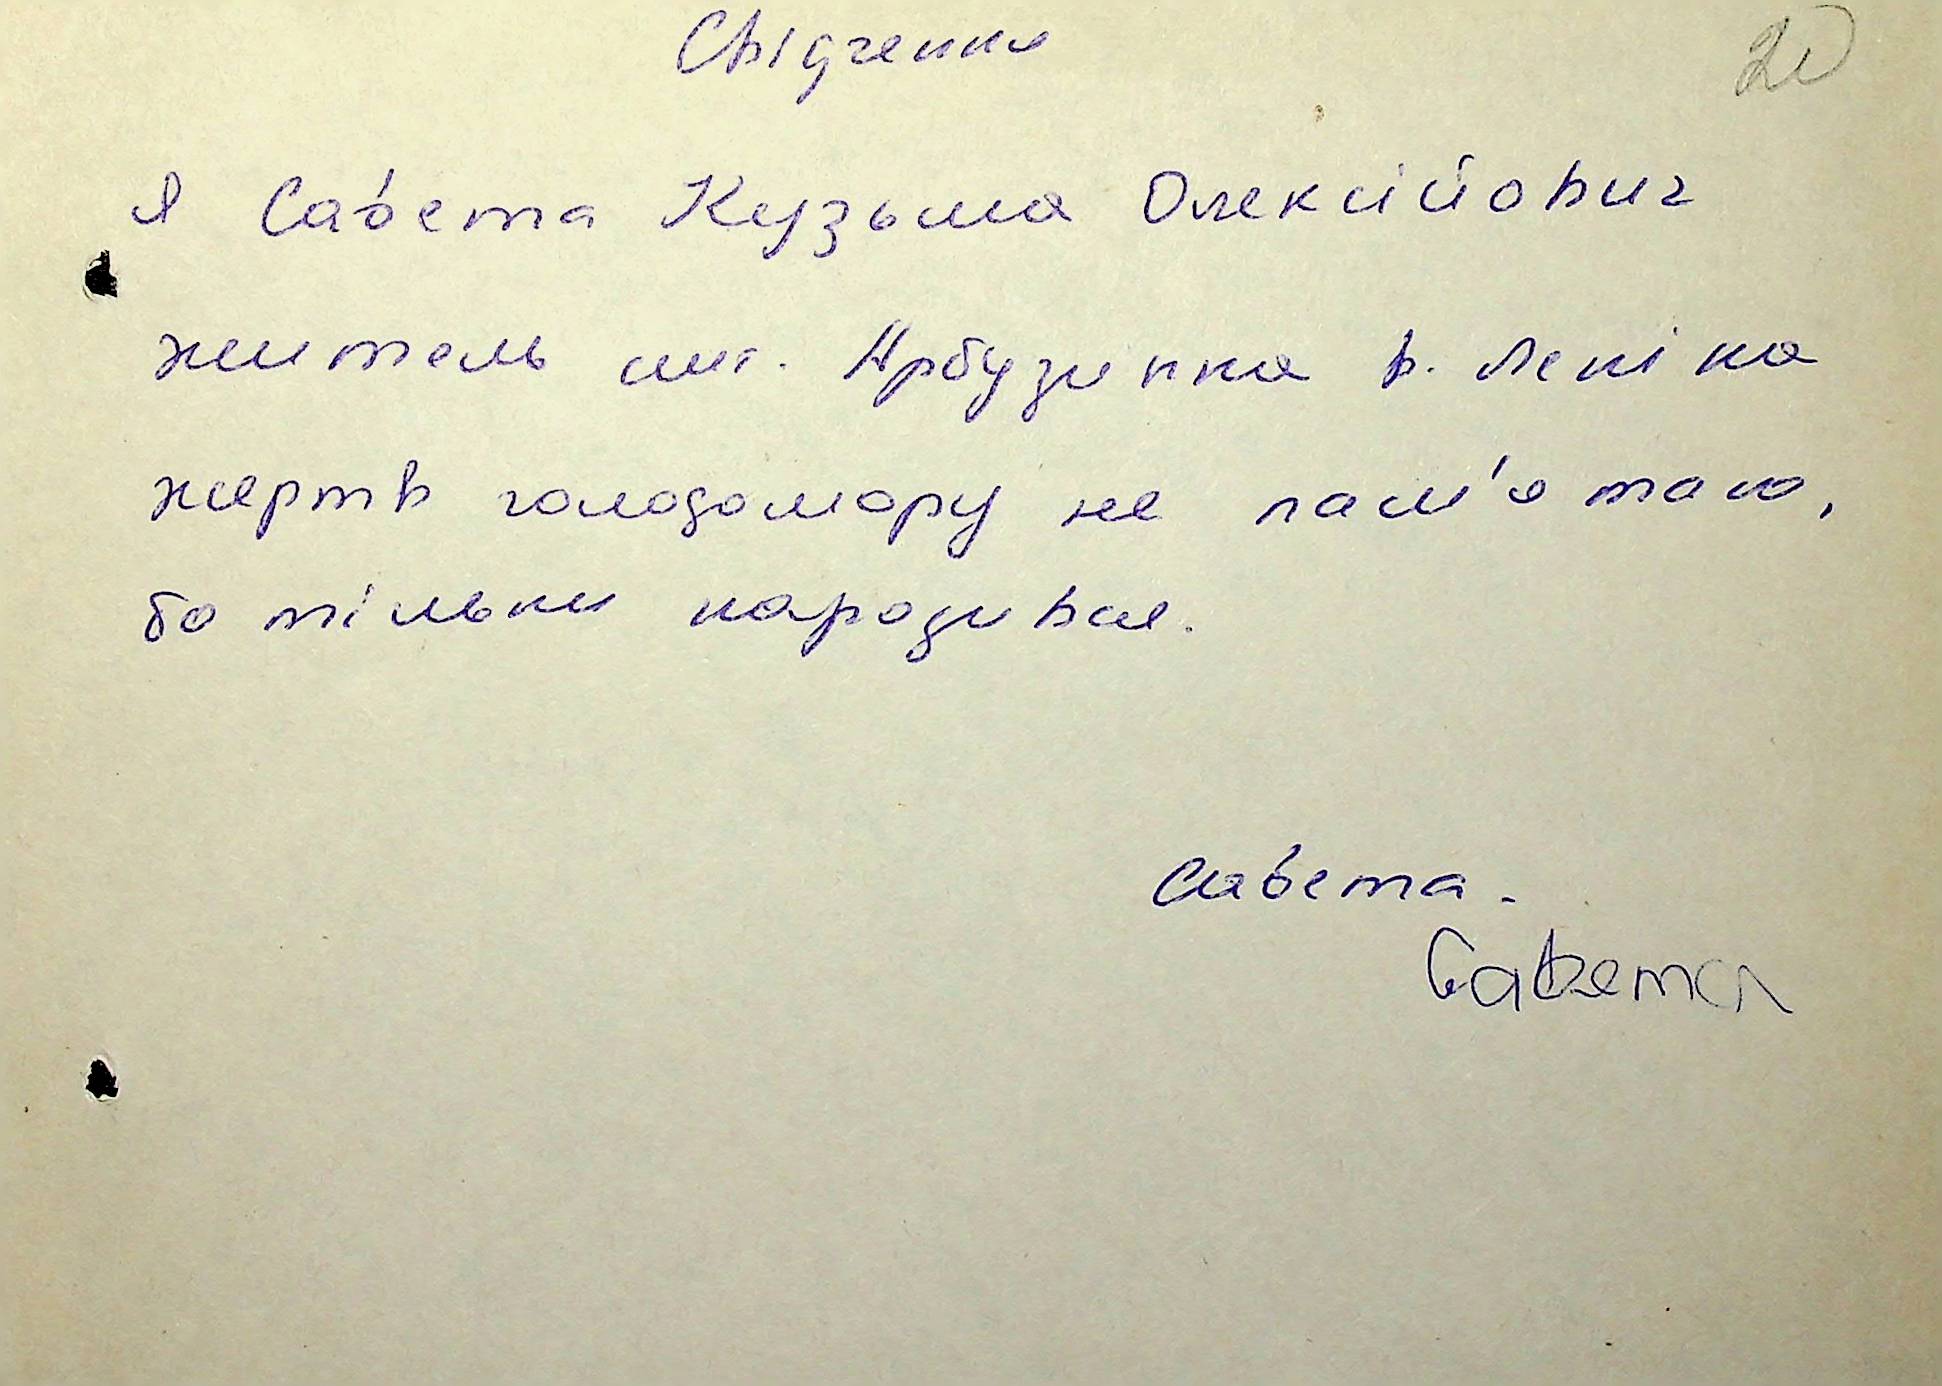 Свідчення
20
Я Савета Кузьма Олексійович
житель смт. Арбузинка в. Леніна
жертв голодомору не пам'ятаю,
бо тільки народився.
Савета.
Савета